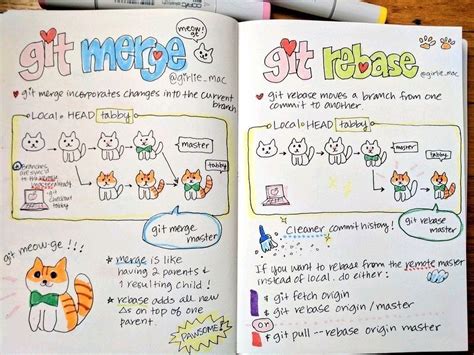 git merge
meow!
ge
@girlie_mac
git merge incorporates changes into the current
branch
Local HEAD tabby
master
tabby
Branches
are
git
checkout
tabby
git merge
master
git meow-ge !!!
merge is like
having 2 parents &
1 resulting child !
rebase adds all new
Δs on top of one
parent.
PAWSOME!
git rebase
@girlie_mac
git rebase moves a branch from one
commit to another.
Local HEAD tabby
master
tabby
git rebase
master
Cleaner commit history!
If you want to rebase from the remote master
instead of local, do either:
$ git fetch origin
$ git rebase origin/master
or
$ git pull --rebase origin master